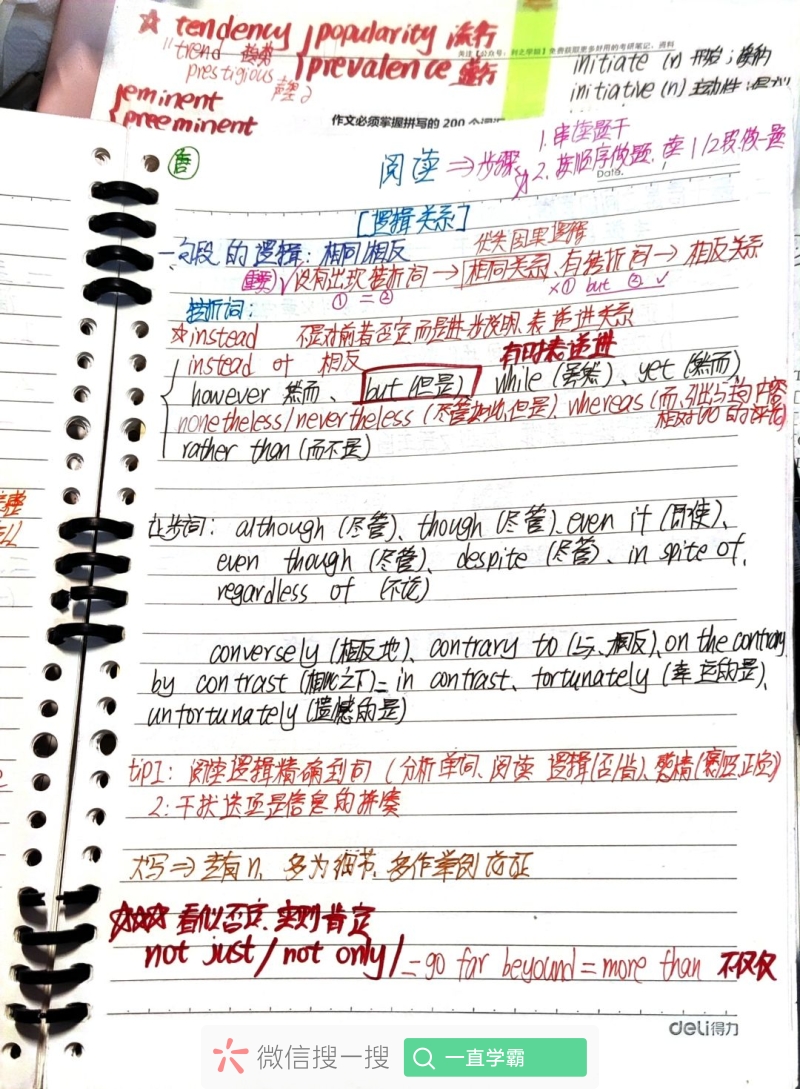 ☆ tendency
popularity 流行
"trend 趋势
prestigious 声望
prevalence 盛行
关注【公众号：利之学姐】免费获取更多好用的考研笔记、资料
initiate (n) 开始；
initiative (n) 主动性；
eminent
preeminent
作文必须掌握拼写的 200 个词汇
阅读 ⇒ 步骤
1. 审读题干
2. 按顺序做题. 读 1/2段做一题
Date.
[逻辑关系]
优先因果逻辑
一句段 的 逻辑：相同/相反
√没有出现转折词 → 相同关系、有转折词 → 相反关系
① = ② × ① but ② √
转折词：
☆instead 不是对前者否定而是进步说明.表递进关系
有时表递进
instead of 相反
however 然而、 but (但是) while (虽然)、yet (然而)
nonetheless/nevertheless (尽管如此,但是)、whereas (而、引出与前内容
相对的的评价)
rather than (而不是)
让步词： although (尽管)、though (尽管)、even if (即使)、
even though (尽管)、despite (尽管)、in spite of,
regardless of (不论)
conversely (相反地)、contrary to (与、相反)、on the contrary
by contrast (相比之下)= in contrast、fortunately (幸运的是)、
unfortunately (遗憾的是)
tip1： 阅读逻辑精确到词 (分析单词、阅读 逻辑(否/肯)、感情(褒贬,正负))
2：干扰选项是信息的拼凑
大写⇒专有n, 多为细节,多作举例论证
☆☆☆ 看似否定.实则肯定
not just / not only / = go far beyound = more than 不仅仅
deli得力
微信搜一搜 一直学霸